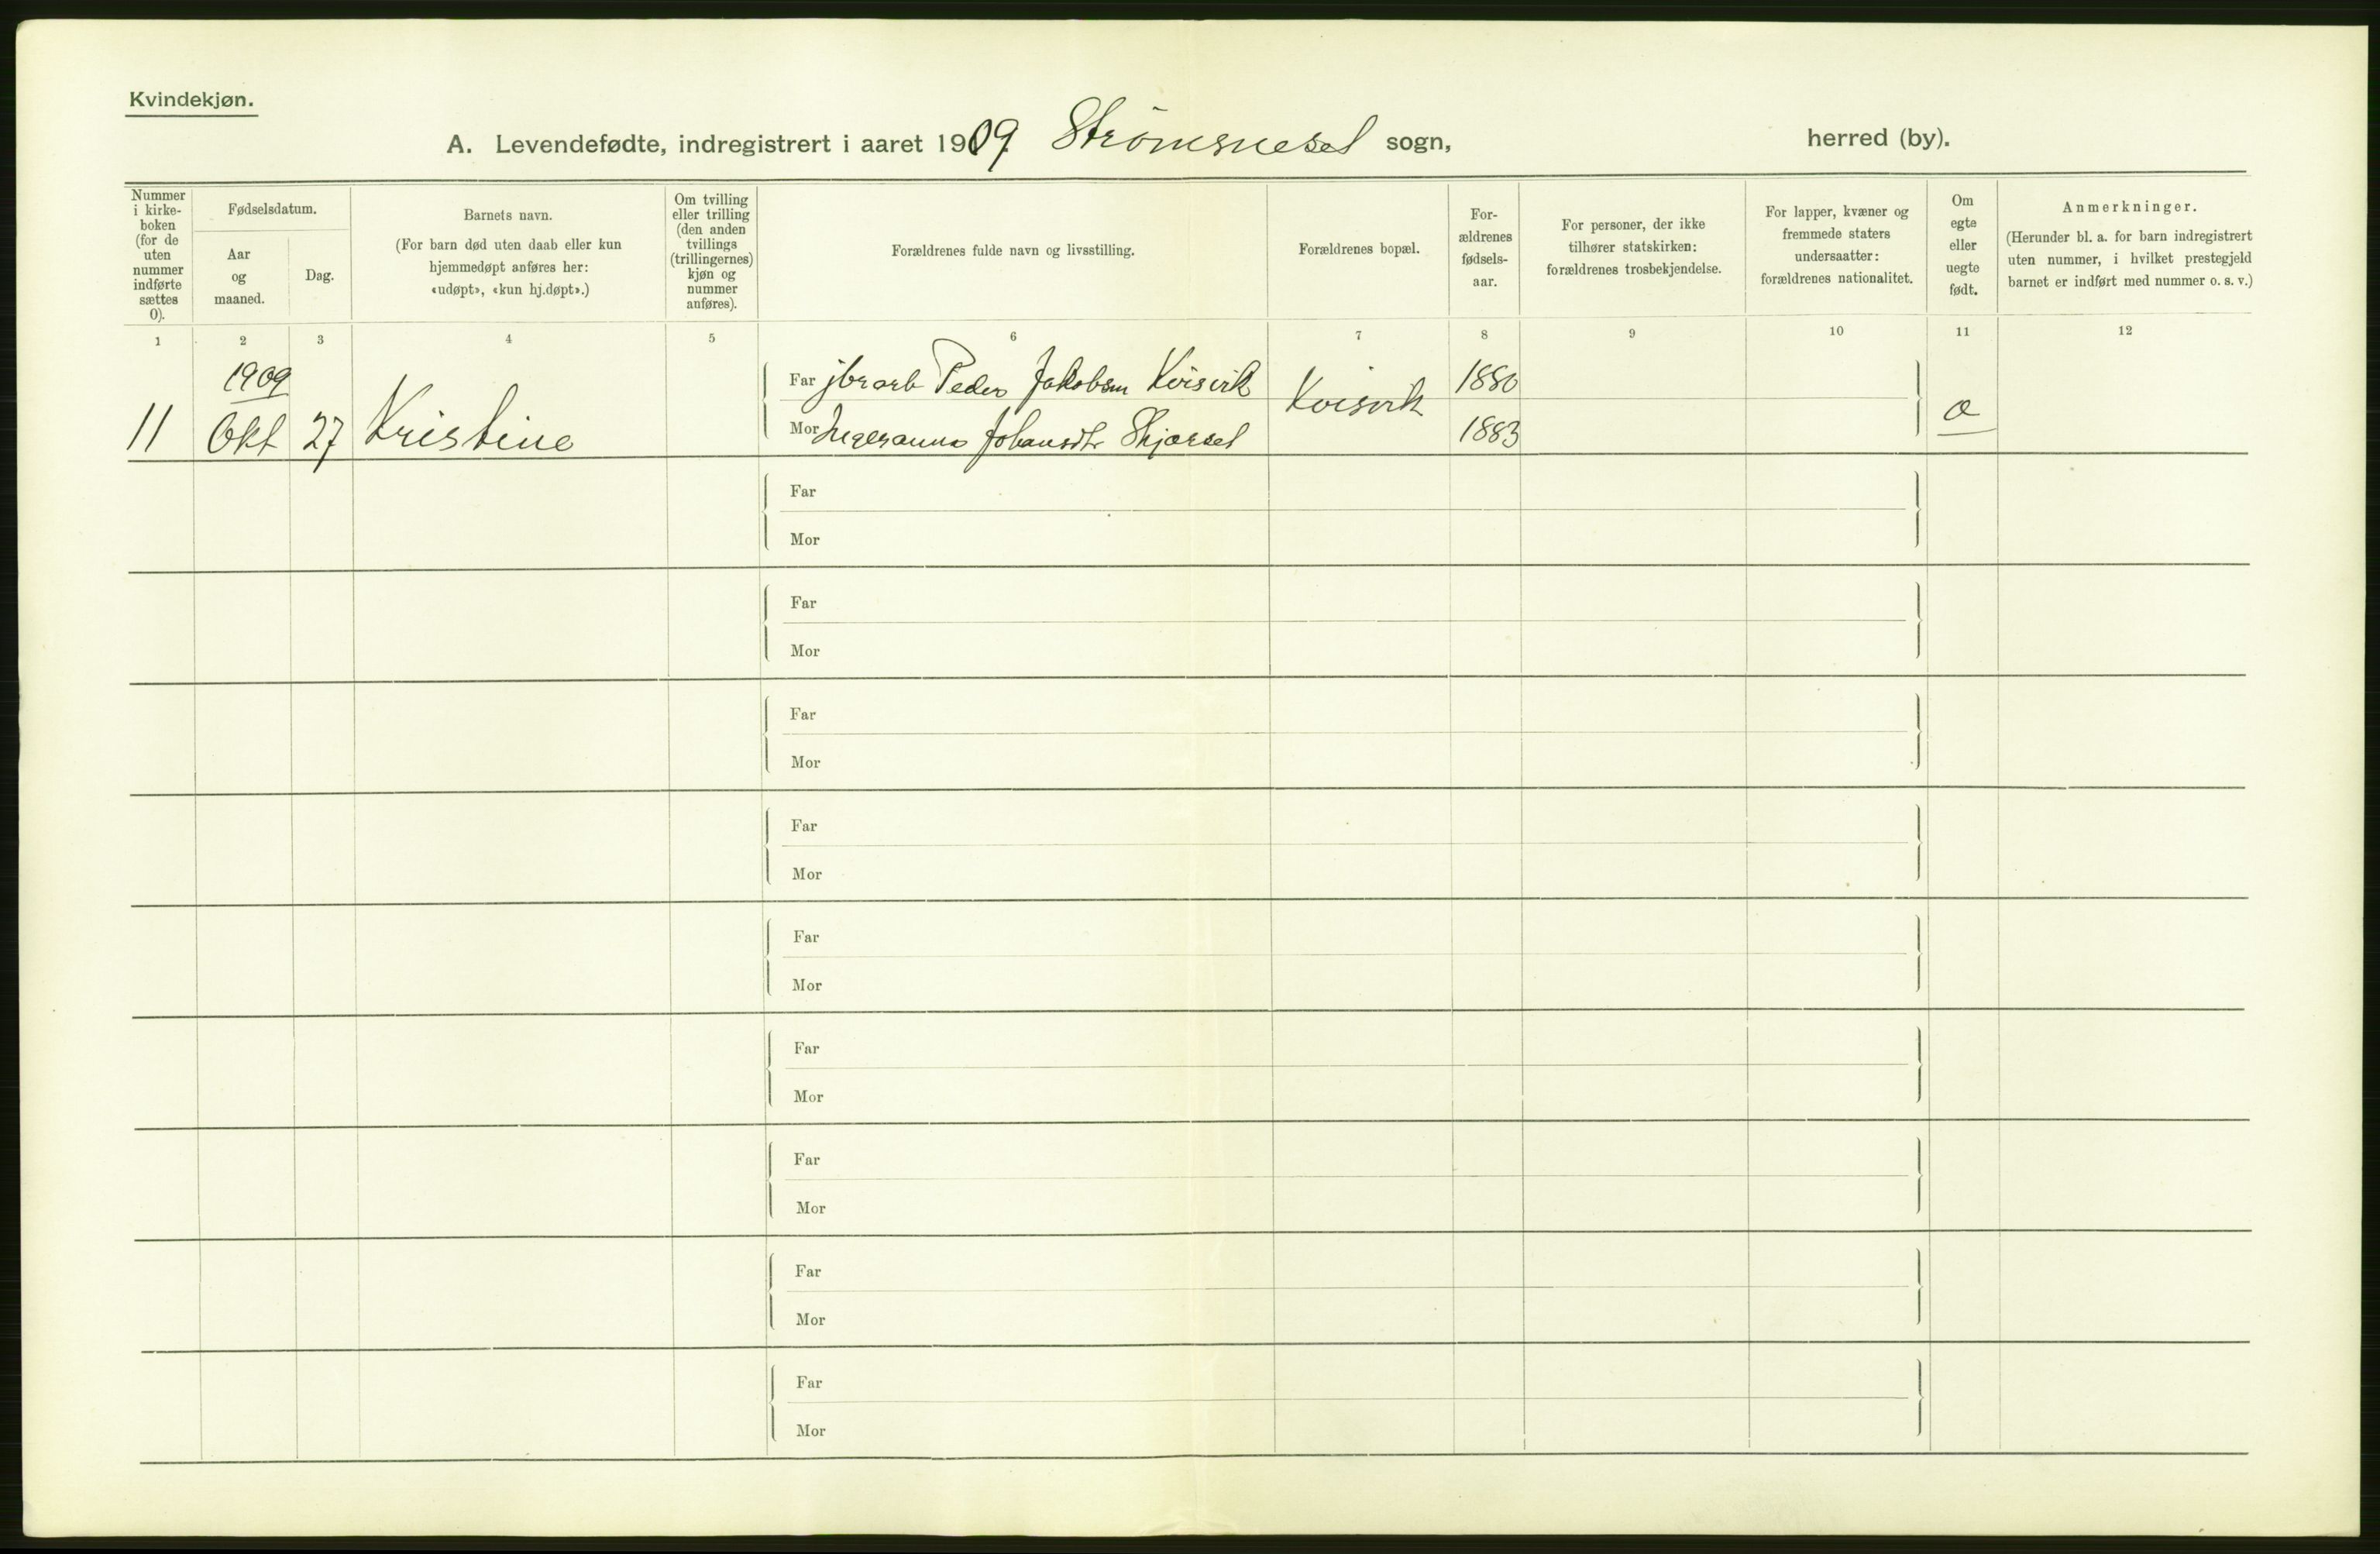 Kvindekjøn.
A. Levendefødte, indregistrert i aaret 1909 Strømsneset sogn, herred (by).
Nummer i kirke-boken (for de uten nummer indførte sættes 0).
Fødselsdatum.
Aar og maaned.
Dag.
Barnets navn.
(For barn død uten daab eller kun hjemmedøpt anføres her: «udøpt», «kun hj.døpt».)
Om tvilling eller trilling (den anden tvillings (trillingernes) kjøn og nummer anføres).
Forældrenes fulde navn og livsstilling.
Forældrenes bopæl.
For-ældrenes fødsels-aar.
For personer, der ikke tilhører statskirken: forældrenes trosbekjendelse.
For lapper, kvæner og fremmede staters undersaatter: forældrenes nationalitet.
Om egte eller uegte født.
Anmerkninger.
(Herunder bl. a. for barn indregistrert uten nummer, i hvilket prestegjeld barnet er indført med nummer o. s. v.)
1 2 3 4 5 6 7 8 9 10 11 12
1909
Far jbrarb Peder Jakobsen Kvisvik Kvisvik 1880
11 Okt 27 Kristine Mor Ingeranna Johansdtr 1883
Far
Mor
Far
Mor
Far
Mor
Far
Mor
Far
Mor
Far
Mor
Far
Mor
Far
Mor
Far
Mor